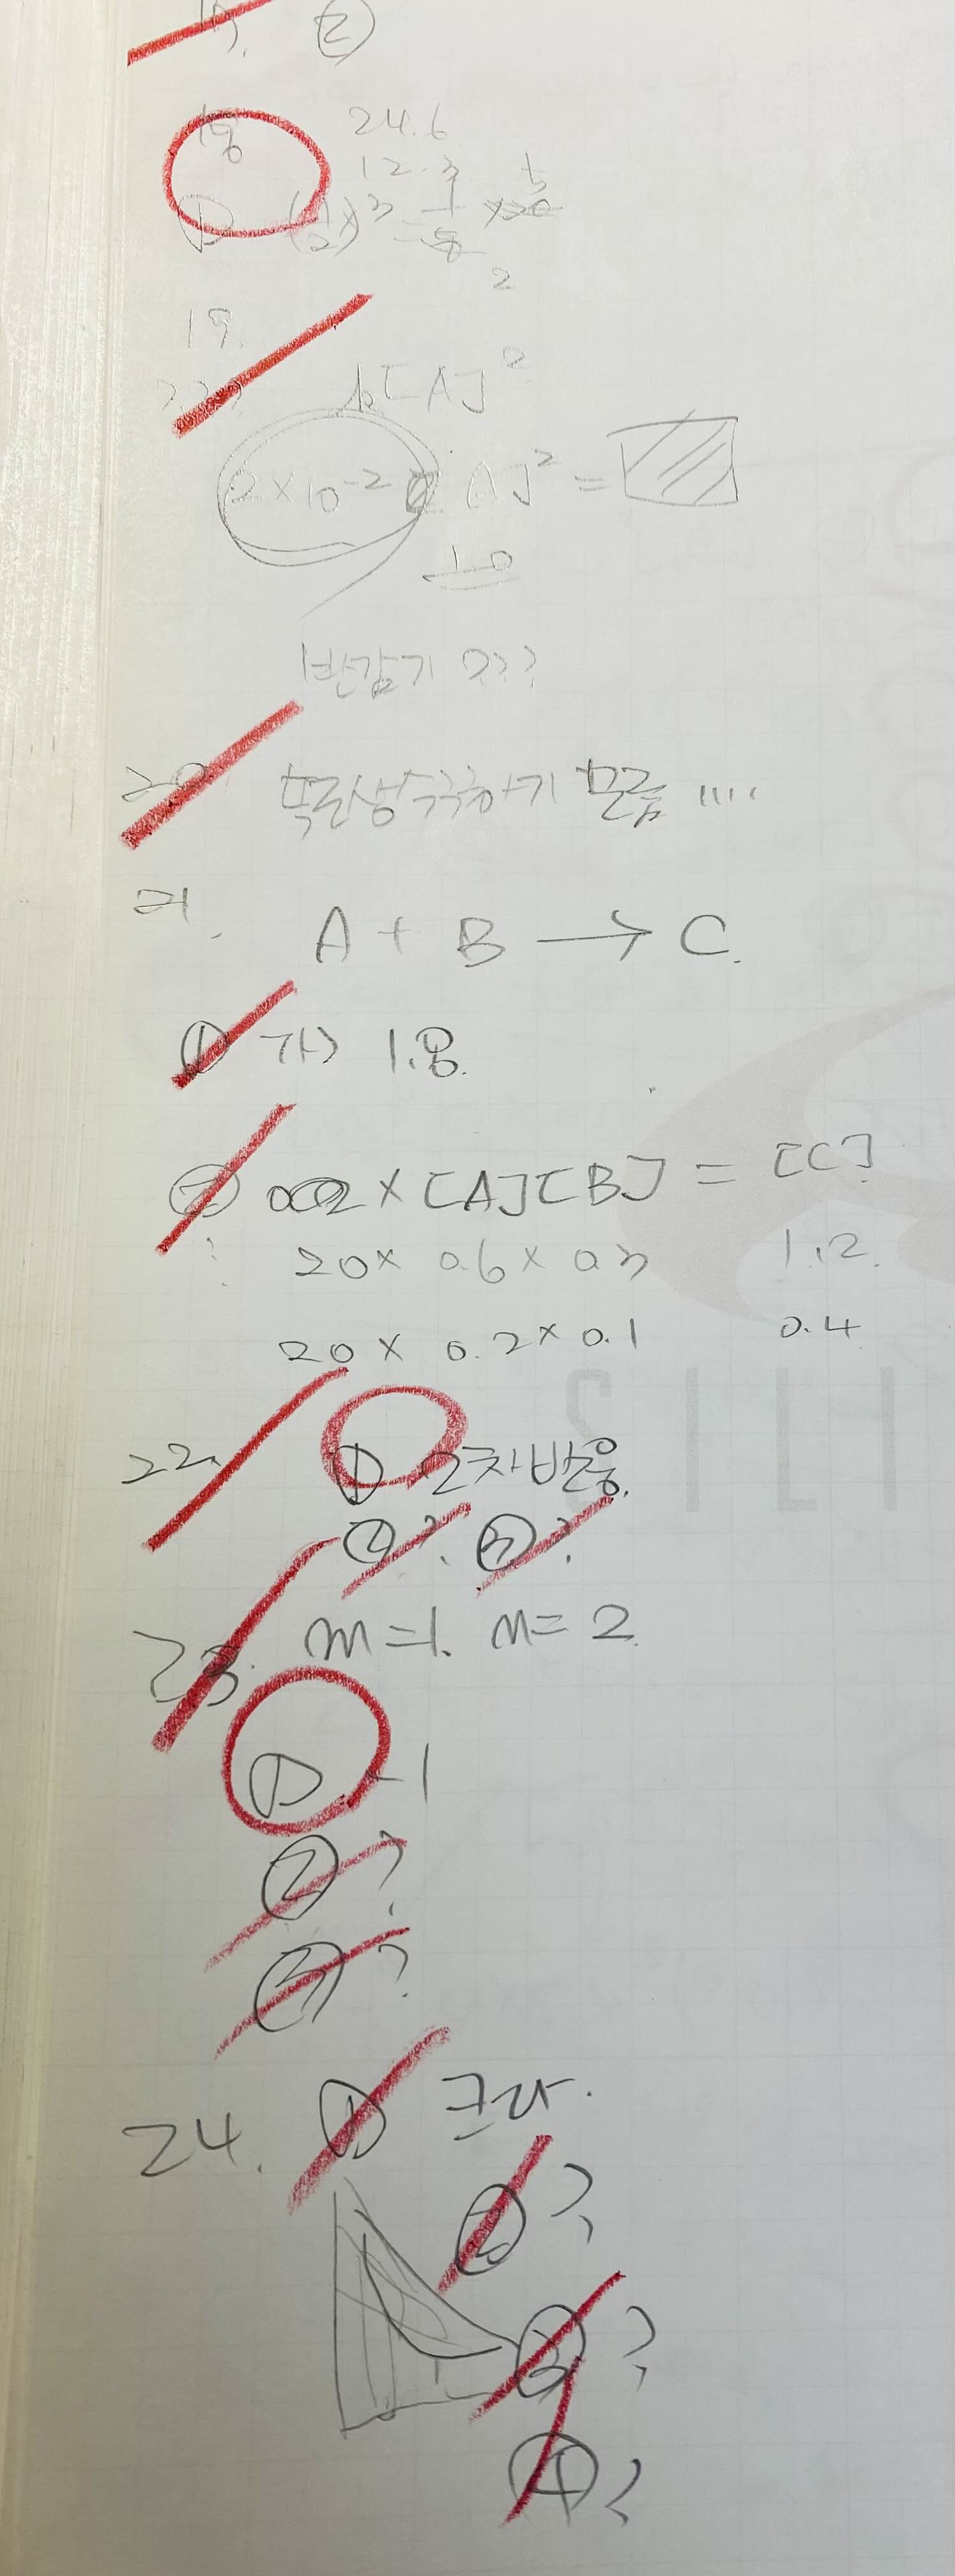 17. ②
18 24.6
12.3
① (1/2)³ 1/8 × 20 5
2
19.
??? k[A]²
2×10⁻² [A]² =
1.0
반감기 ???
20. 똑준생 구하기 모름 ....
21. A + B → C.
① 가) 1.8.
② × [A][B] = [C]?
20× 0.6 × 0.3 1.2.
20 × 0.2 × 0.1 0.4
22. ① 2차반응.
② ?. ③ ?
23. m=1. n=2.
① -1
② ?
③ ?
24. ① 크다.
② ?
③ ?
④ ?